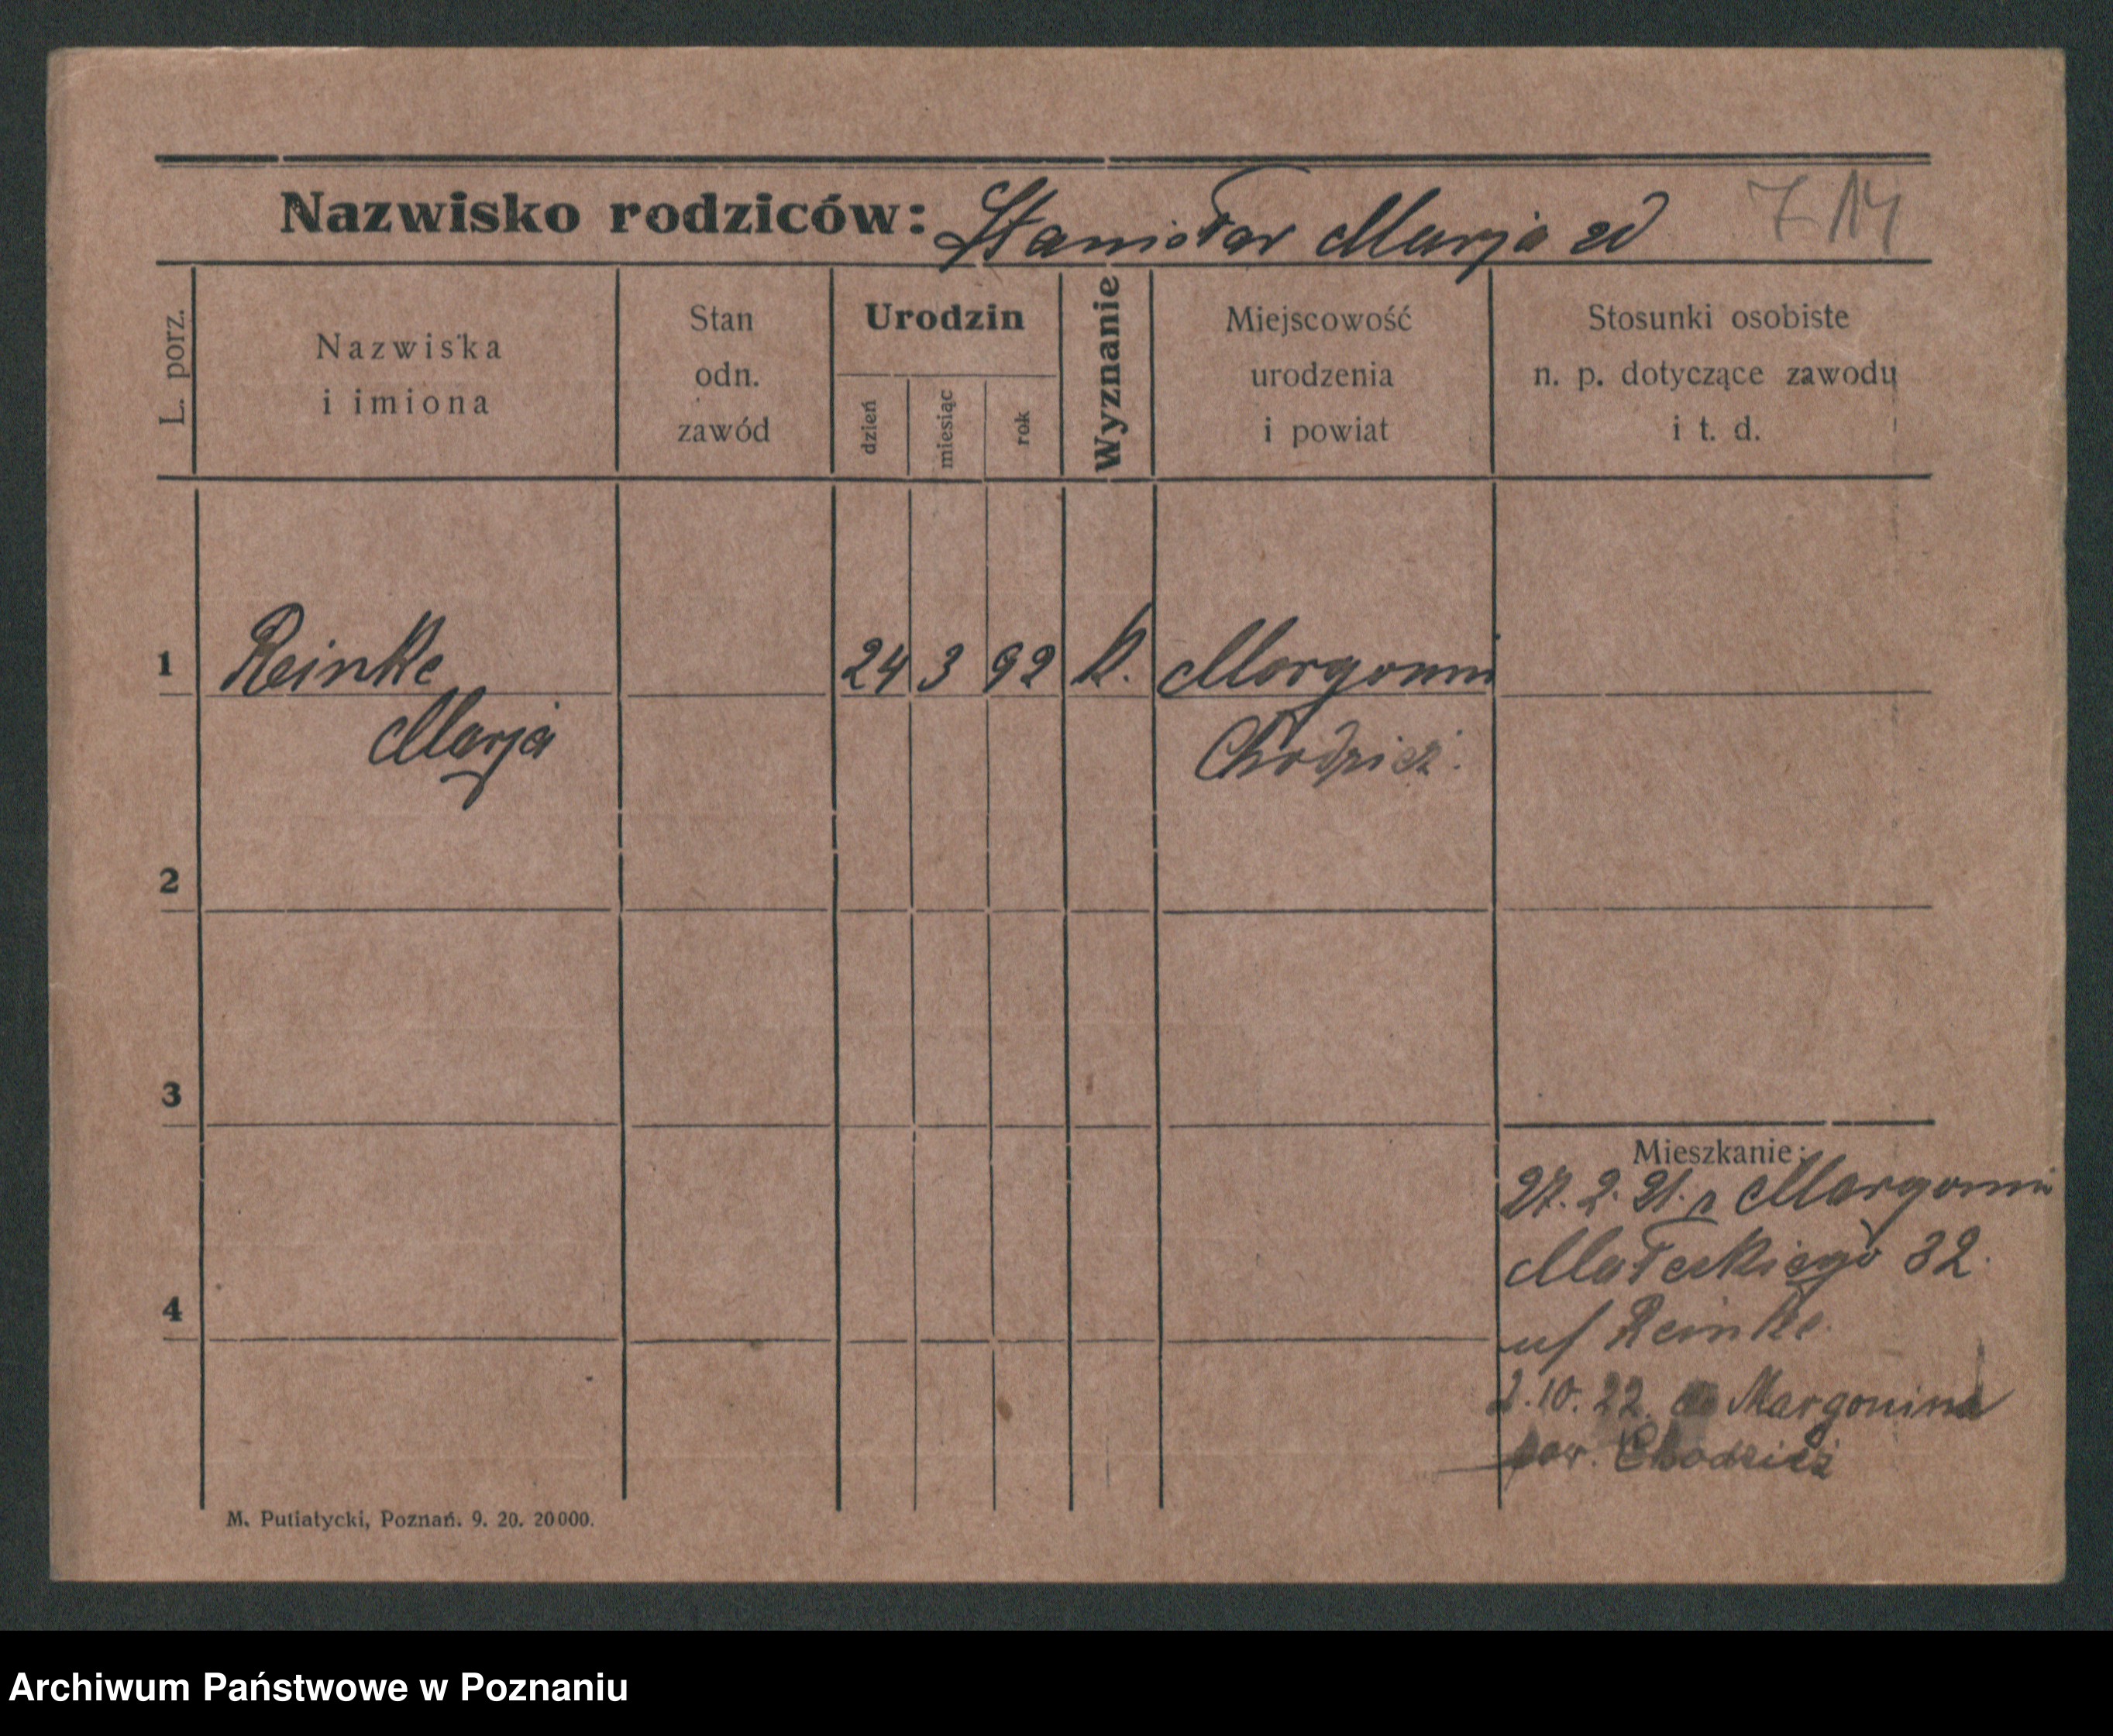 Nazwisko rodziców: Stanisław Marja 714
L. porz.
Nazwiska
i imiona
Stan
odn.
zawód
Urodzin
dzień
miesiąc
rok
Wyznanie
Miejscowość
urodzenia
i powiat
Stosunki osobiste
n. p. dotyczące zawodu
i t. d.
1 Reinke 24 3 92 k. Margonin
Marja Chodzież.
2
3
Mieszkanie:
27. 2. 21. z Margonin
Małeckiego 32.
4
u/ Reinke.
2.10.22. do Margonina
pow. Chodzież
M. Putiatycki, Poznań. 9. 20. 20000.
Archiwum Państwowe w Poznaniu